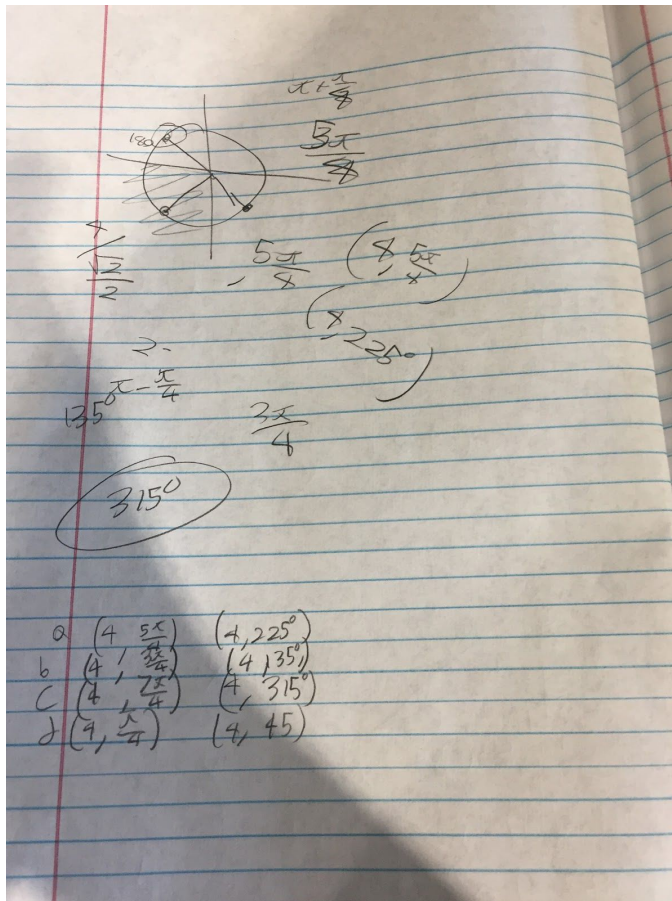 π + π/4
180
5π/4
4
√2/2
, 5π/4
(4, 5π/4)
(4, 225°)
2-
π - π/4
135°
3π/4
315°
a (4, 5π/4) (4, 225°)
b (4, 3π/4) (4, 135°)
c (4, 7π/4) (4, 315°)
d (4, π/4) (4, 45)